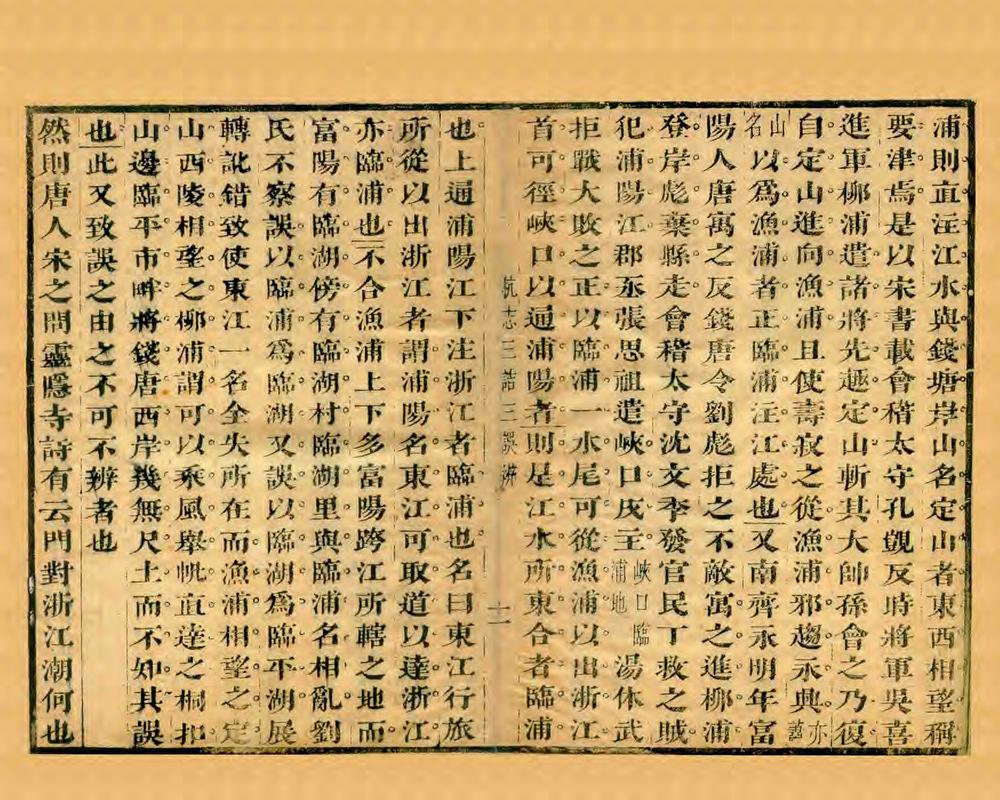 浦則直注江水與錢塘岸山名定山者東西相望稱
要津焉是以宋書載會稽太守孔覬反時將軍吳喜
進軍柳浦遣諸將先趣定山斬其大帥孫會之乃復
自定山進向漁浦且使壽寂之從漁浦邪趨永興亦
山名以爲漁浦者正臨浦注江處也又南齊永明年富
陽人唐㝢之反錢唐令劉彪拒之不敵㝢之進柳浦
登岸彪棄縣走會稽太守沈文季發官民丁救之賊
犯浦陽江郡丞張思祖遣峽口戍主峽口臨浦地湯休武
拒戰大敗之正以臨浦一水尾可從漁浦以出浙江
首可徑峽口以通浦陽者則是江水所東合者臨浦
杭志三詰三誤辨
十一
也上通浦陽江下注浙江者臨浦也名曰東江行旅
所從以出浙江者謂浦陽名東江可取道以達浙江
亦臨浦也不合漁浦上下多富陽跨江所轄之地而
富陽有臨湖傍有臨湖村臨湖里與臨浦名相亂劉
氏不察誤以臨浦爲臨湖又誤以臨湖爲臨平湖展
轉訛錯致使東江一名全失所在而漁浦相望之定
山西陵相望之柳浦謂可以乘風舉帆直達之桐扣
山邊臨平市畔將錢唐西岸幾無尺土而不知其誤
也此又致誤之由之不可不辨者也
然則唐人宋之問靈隱寺詩有云門對浙江潮何也